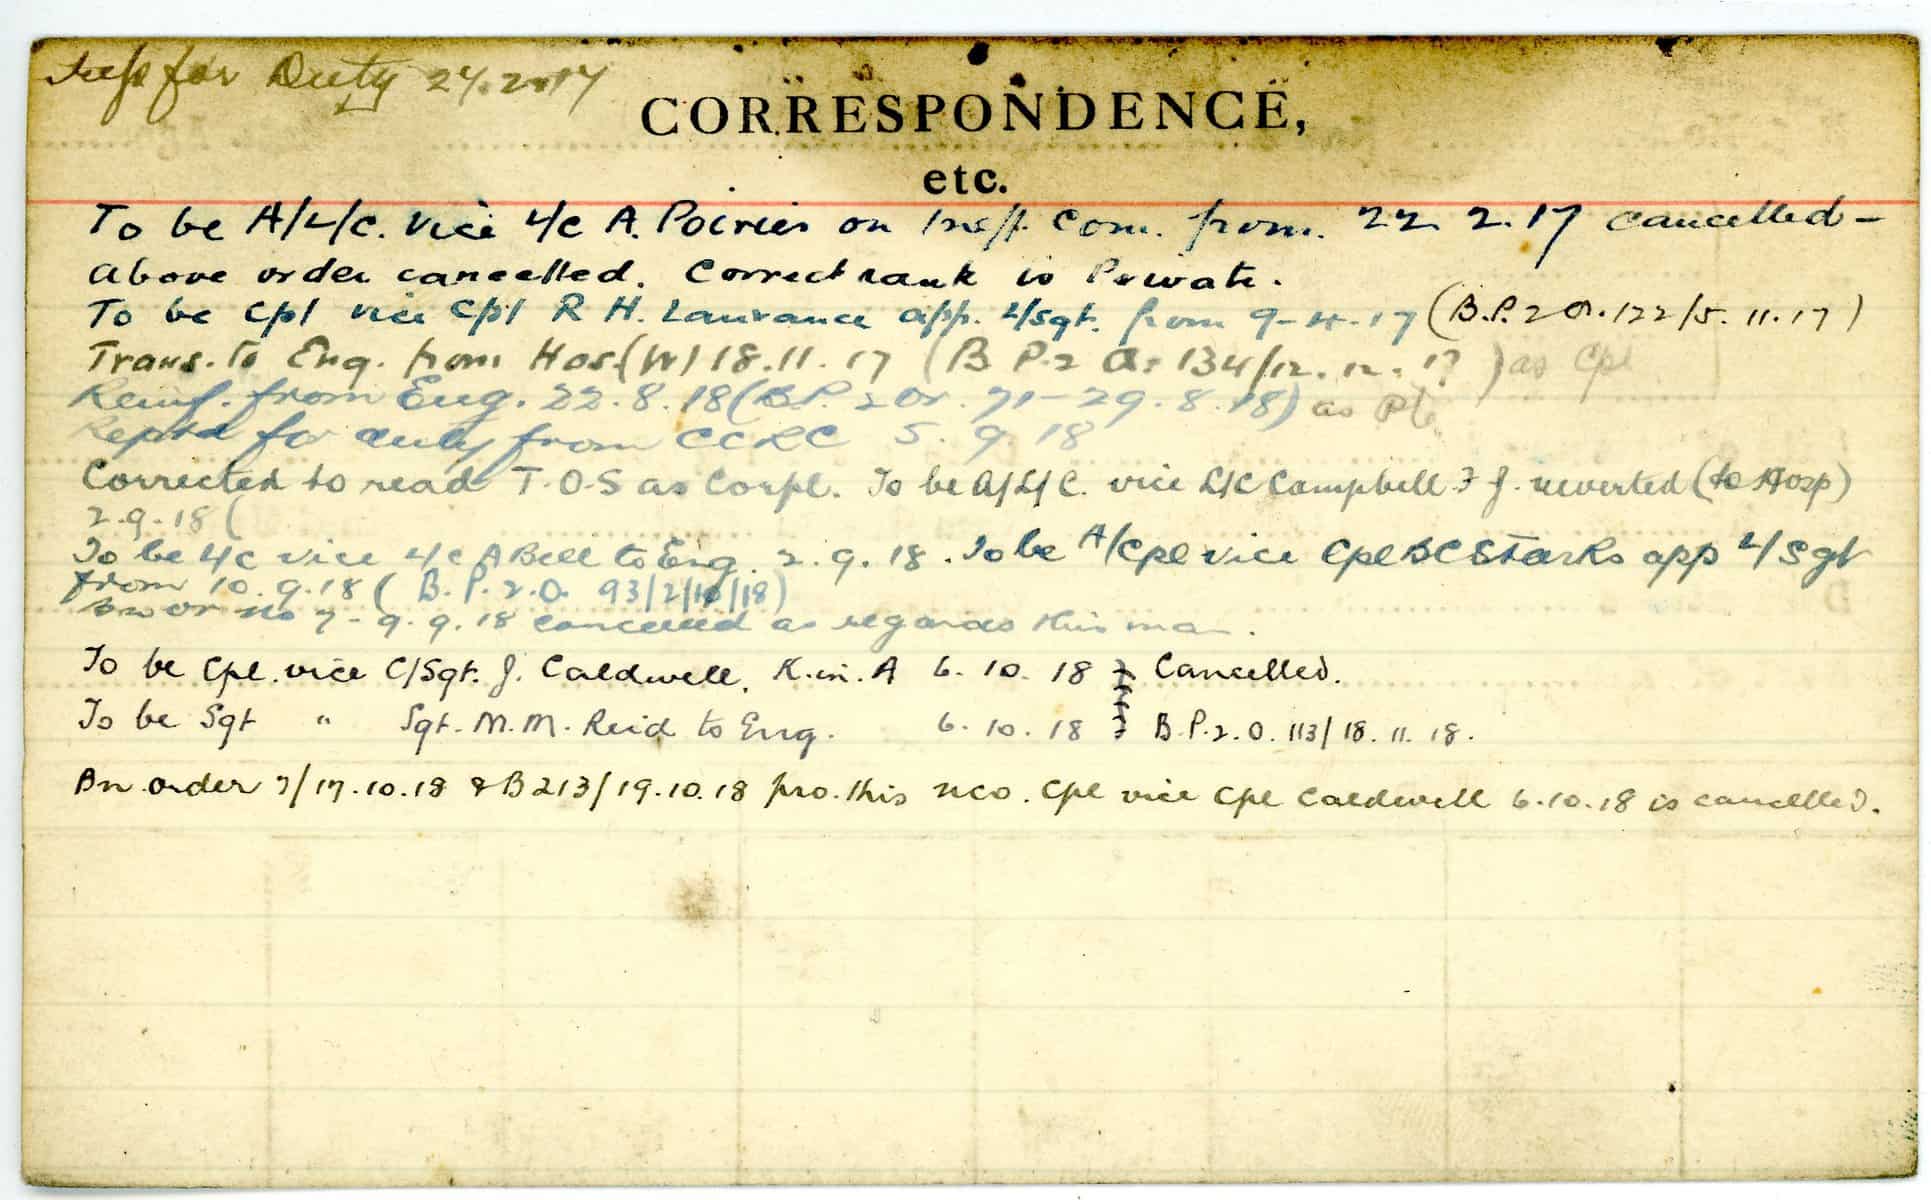 for Duty 27.2.17
CORRESPONDENCE,
etc.
To be A/L/C. vice L/C A. Poirier on Ineff. Com. from. 22 2.17 cancelled -
above order cancelled. Correct rank is Private.
To be Cpl vice Cpl R H. Laurance app. L/Sgt. from 9-4-17 (B.P. 2 Or. 122/5.11.17)
Trans. to Eng. from Hos (W) 18.11.17 (B P. 2 O. 134/12.12.17) as Cpl
Reinf. from Eng. 22.8.18 (B.P. 2 Or. 71-29.8.18) as Pte
Reptd for duty from CCRC 5.9 18
Corrected to read T.O.S as Corpl. To be A/L/C. vice L/C Campbell F J. reverted (to Hosp)
2.9.18 (
To be L/C vice L/C A Bell to Eng. 2.9.18. To be A/Cpl vice Cpl B C Starks app L/Sgt
from 10.9.18 ( B.P.2.O. 93/2/10/18)
Bn or no 7-9.9.18 cancelled as regards this man.
To be Cpl. vice C/Sgt. J. Caldwell. K.in.A 6.10.18 } Cancelled.
To be Sgt " Sgt. M.M. Reid to Eng. 6.10.18 } B.P.2.O. 113/18.11.18.
Bn. order 7/17.10.18 & B213/19.10.18 pro. this nco. Cpl vice Cpl Caldwell 6.10.18 is cancelled.